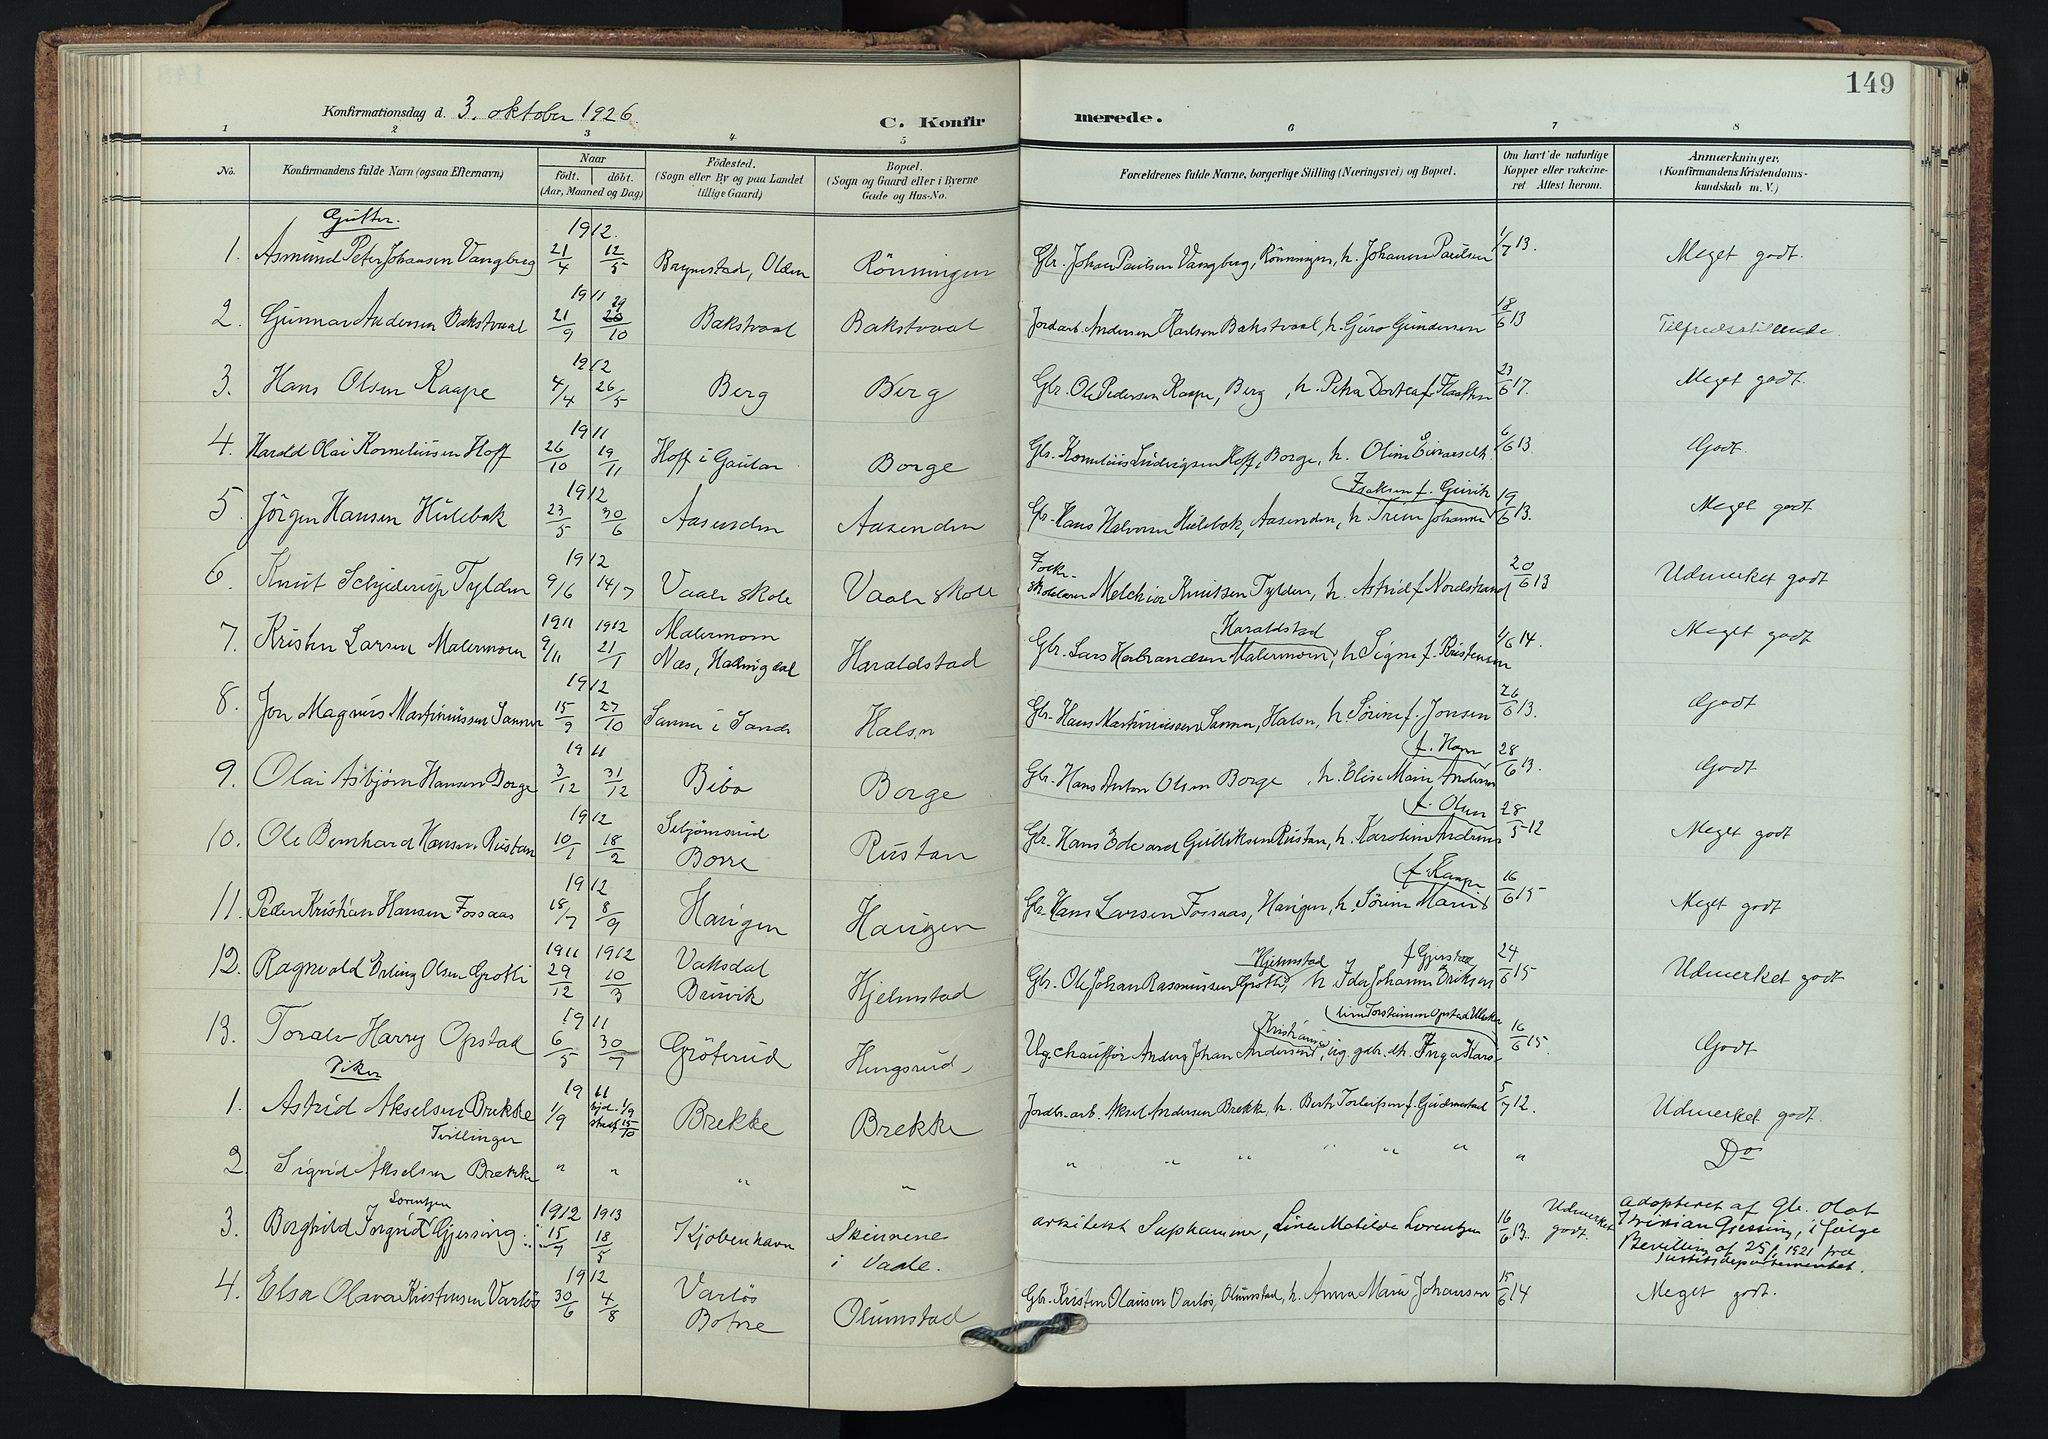 149
Konfirmationsdag d. 3. oktober 1926.
C. Konfirmerede.
1 2 3 4 5 6 7 8
No. Konfirmandens fulde Navn (ogsaa Efternavn) Naar födt. döbt. (Aar, Maaned og Dag) Födested. (Sogn eller By og paa Landet tillige Gaard) Bopæl. (Sogn og Gaard eller i Byerne Gade og Hus-No. Forældrenes fulde Navne, borgerlige Stilling (Næringsvei) og Bopæl. Om havt de naturlige Kopper eller vaksineret Attest herom. Anmærkninger, (Konfirmandens Kristendomskundskab m. V.)
Gutter.
1. Asmund Peter Johansen Vangberg 1912. 21/4 12/5 Olden Rönningen Gbr. Johan Paulsen Vangberg, Rönningen, h. Johanne Paulsen 1/7 13. Meget godt.
2. Gunnar Andersen Bakstvaal 1911 21/9 29/10 Bakstvaal Bakstvaal Jordarb. Andersen Karlsen Bakstvaal, h. Guro Gundersen 18/6 13 Tilfredsstillende.
3. Hans Olsen Raape 1912 4/4 26/5 Berg Berg Gbr. Ole Pedersen Raape, Berg, h. Petra Dortea f. 23/6 17. Meget godt.
4. Harald Olai Korneliusen Hoff 1911 26/10 19/11 Hoff i Borge Gbr. Kornelius Ludvigsen Hoff, Borge, h. Oline 6/6 13. Godt.
5. Jörgen Hansen Hulebak 1912 23/5 30/6 Aasenden Aasenden Gbr. Hans Halvorsen Hulebak, Aasenden, h. Trine Johanne Isaksen f. 19/6 13. Meget godt
6. Knut Schjelderup Tylden 1912 9/6 14/7 Vaale skole Vaale skole Melchior Knutsen Tylden, h. Astrid f. Nordstrand 20/6 13 Udmerket godt
7. Kristen Larsen Malermoen 1911 9/11 1912 21/1 Malermoen Næs, Hallingdal Haraldstad Gbr. Lars Herbrandsen Malermoen, Haraldstad h. Signe f. Kristensen 1/6 14. Meget godt
8. Jon Magnus Martiniussen Sanner 1912 15/9 27/10 Sanner i Sande Halsen Gbr. Hans Martiniussen Sanner, Halsn, h. Sörine f. Jonsen 26/6 13. Godt
9. Olai Asbjörn Hansen Borge 1911 3/12 31/12 Bibo Borge Gbr. Hans Anton Olsen Borge, h. Elise Marie Andersen 28/6 13. Godt
10. Ole Bernhard Hansen Rustan 1912 10/1 18/2 Borre Rustan Gbr. Hans Edvard Gulliksen Rustan, h. Karoline Andrine f. Olsen 28/5 12 Meget godt
11. Peder Kristian Hansen Fossaas 1912 18/7 8/9 Haugen Haugen Gbr. Hans Larsen Fossaas, Haugen, h. Sörine Marie f. Raape 16/6 15 Meget godt
12. Ragnvald Erling Olsen Grotli 1911 29/12 1912 10/3 Vaksdal Bruvik Hjelmstad Gbr. Ole Johan Rasmussen Grotli, Hjelmstad h. Ida Johanne Eriksen f. Gjerstad 24/6 15 Udmerket godt
13. Toralv Harry Opstad 1911 6/5 30/7 Gröterud Hengsrud Ug. chauffør Anders Johan Andersen, Kristiania, ug. gdr. dt. Inga Torsteinsen Opstad 16/6 15. Godt
Piker
1. Astrid Akselsen Brekke 1911 1/9 1/9 15/10 Brekke Brekke Jordbr. arb. Aksel Andersen Brekke, h. Berte Torleifsen f. Gudmestad 5/7 12. Udmerket godt
Tvillinger
2. Sigrid Akselsen Brekke " " " " " " " " " " " Do
3. Borghild Ingrid Lorentzen Gjessing 1912 15/7 1913 18/5 Kjøbenhavn Skinnene i Vaale. arkitekt Suphammer, Linea Matilde Lorentzen 16/6 13. Udmerket godt. adopteret af Gbr. Olaf Kristian Gjessing, i følge Bevilling af 1921 fra Justitsdepartementet.
4. Elsa Olava Kristensen Varlös 1912 30/6 4/8 Varlös Botne Olumstad Gbr. Kristen Olausen Varlös, Olumstad, h. Anna Marie Johansen 15/6 14 Meget godt.